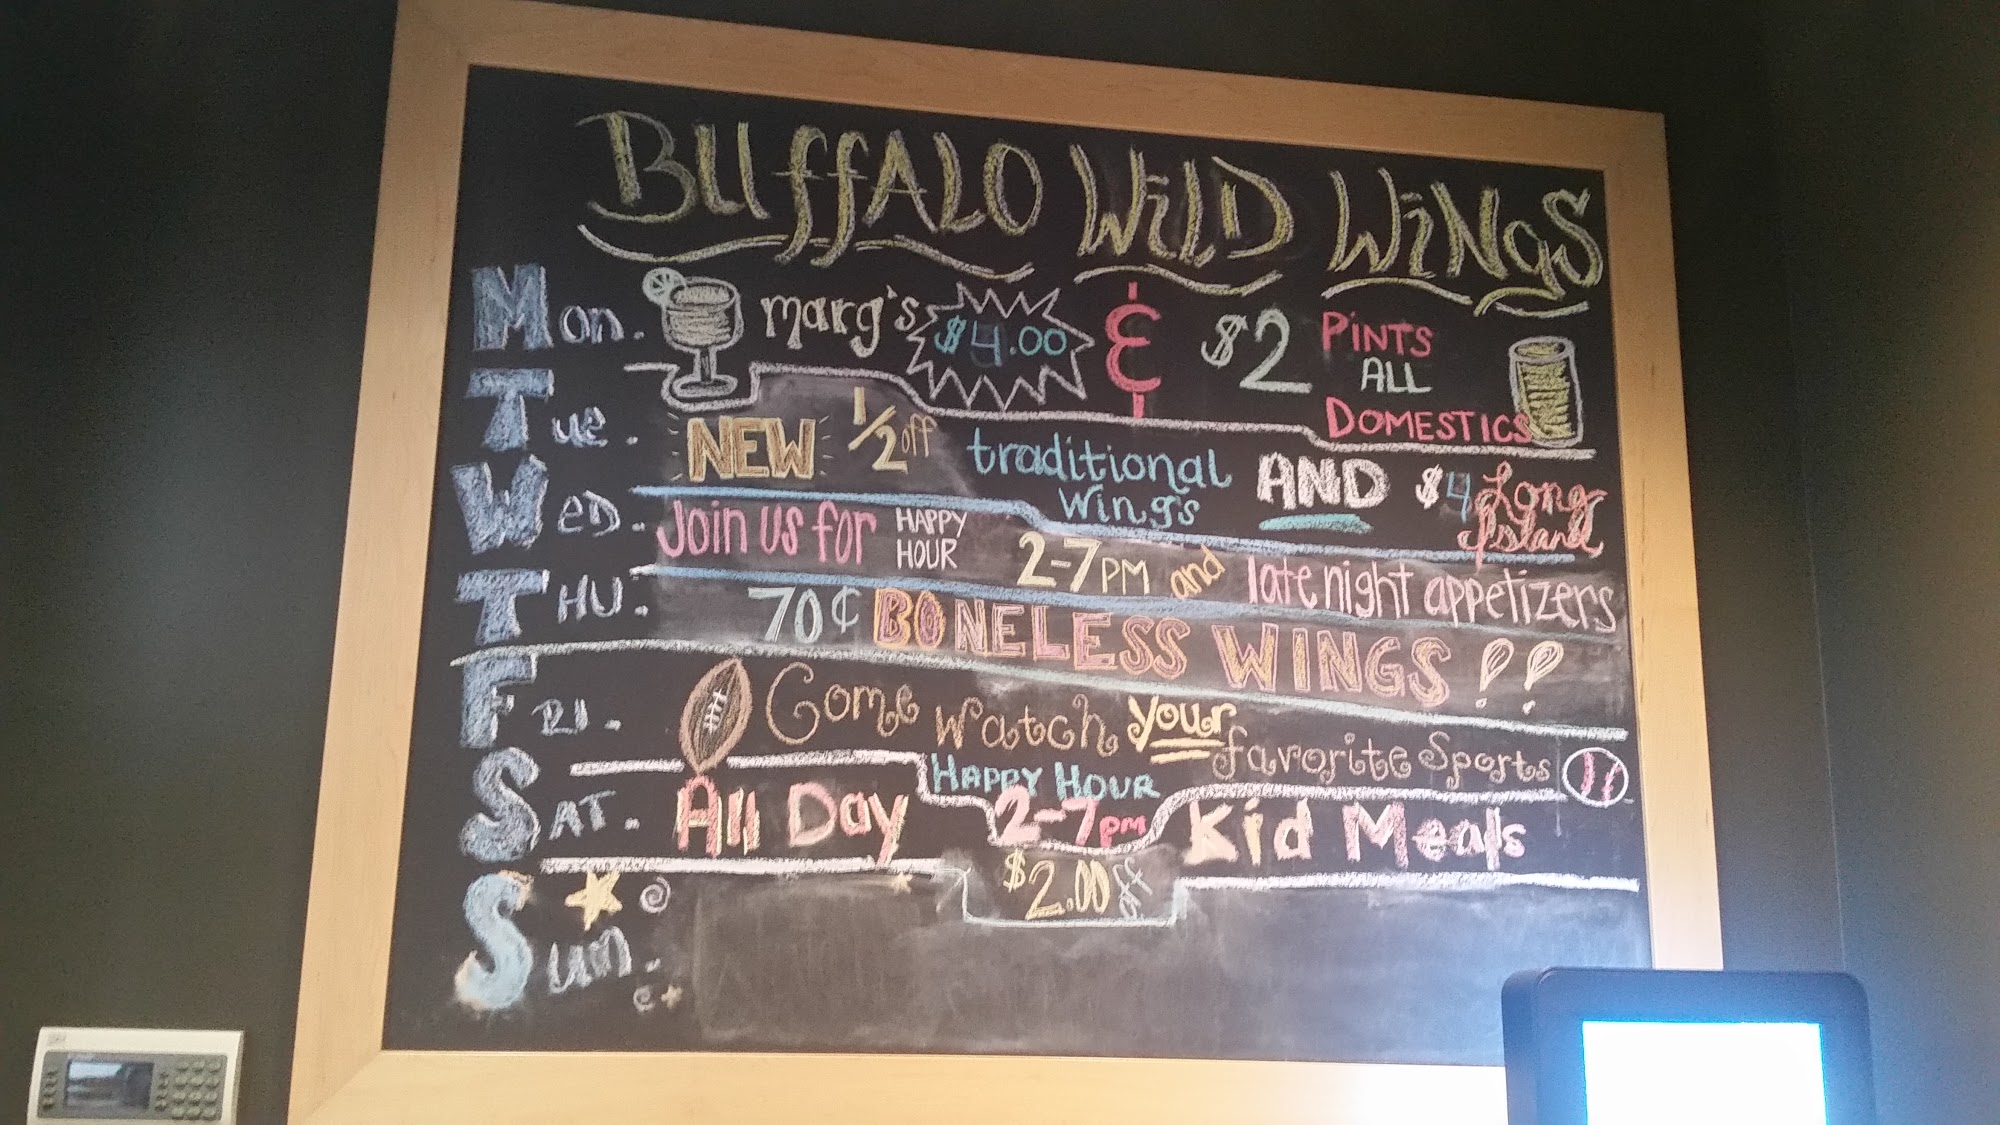 BUffALO WiLD WiNgS
Mon. marg's $4.00 & $2 PiNTS ALL DOMESTICS
Tue. NEW 1/2 off traditional wing's AND $4 Long Island
WED. Join us for HAPPY HOUR 2-7PM and late night appetizers
THU. 70¢ BONELESS WINGS !!
FRI. Come Watch your favorite Sports
HAPPY HOUR
SAT. All Day 2-7pm Kid Meals
$2.00 off
Sun.